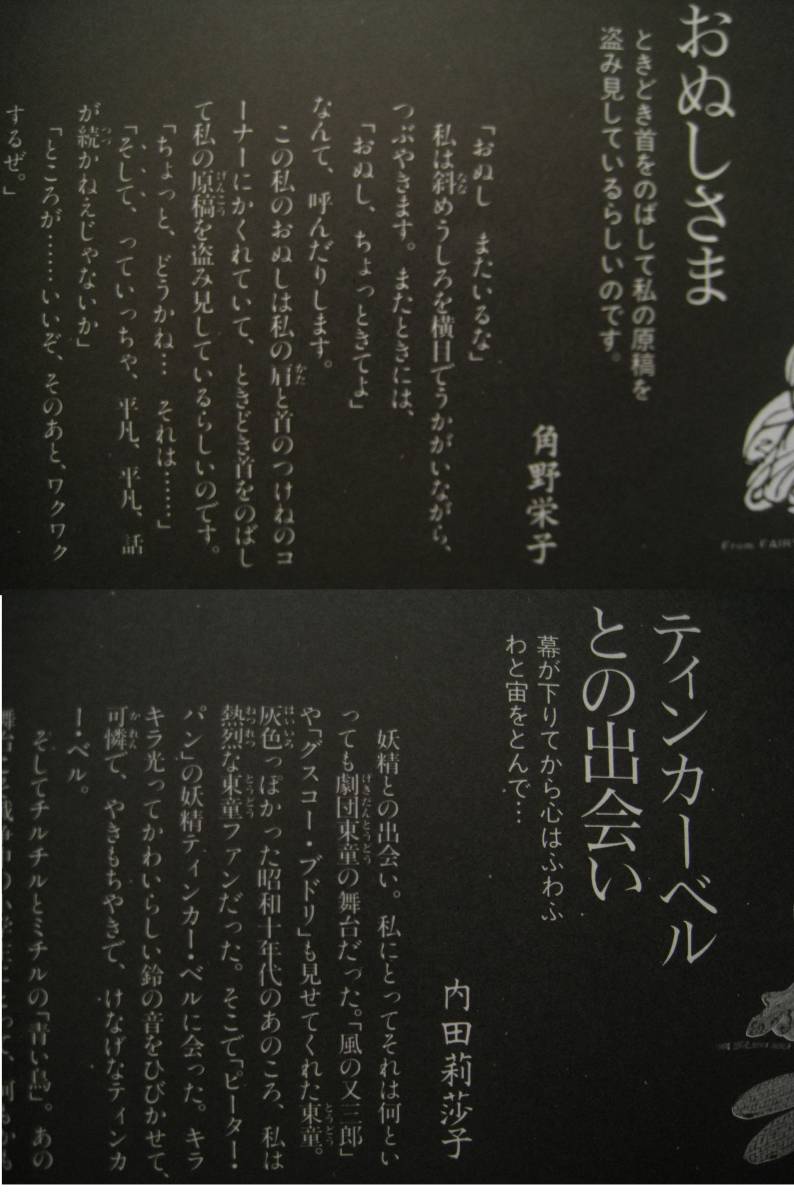 おぬしさま
ときどき首をのばして私の原稿を
盗み見しているらしいのです。
角野栄子
「おぬし　またいるな」
私は斜めうしろを横目でうかがいながら、
つぶやきます。またときには、
「おぬし、ちょっときてよ」
なんて、呼んだりします。
この私のおぬしは私の肩と首のつけねのコ
ーナーにかくれていて、ときどき首をのばし
て私の原稿を盗み見しているらしいのです。
「ちょっと、どうかね…　それは……」
「そして、っていっちゃ、平凡、平凡、話
が続かねえじゃないか」
「ところが……いいぞ、そのあと、ワクワク
するぜ。」
From FAIR
ティンカーベル
との出会い
幕が下りてから心はふわふ
わと宙をとんで…
内田莉莎子
妖精との出会い。私にとってそれは何とい
っても劇団東童の舞台だった。「風の又三郎」
や「グスコー・ブドリ」も見せてくれた東童。
灰色っぽかった昭和十年代のあのころ、私は
熱烈な東童ファンだった。そこで「ピーター・
パン」の妖精ティンカー・ベルに会った。キラ
キラ光ってかわいらしい鈴の音をひびかせて、
可憐で、やきもちやきで、けなげなティンカ
ー・ベル。
そしてチルチルとミチルの「青い鳥」。あの